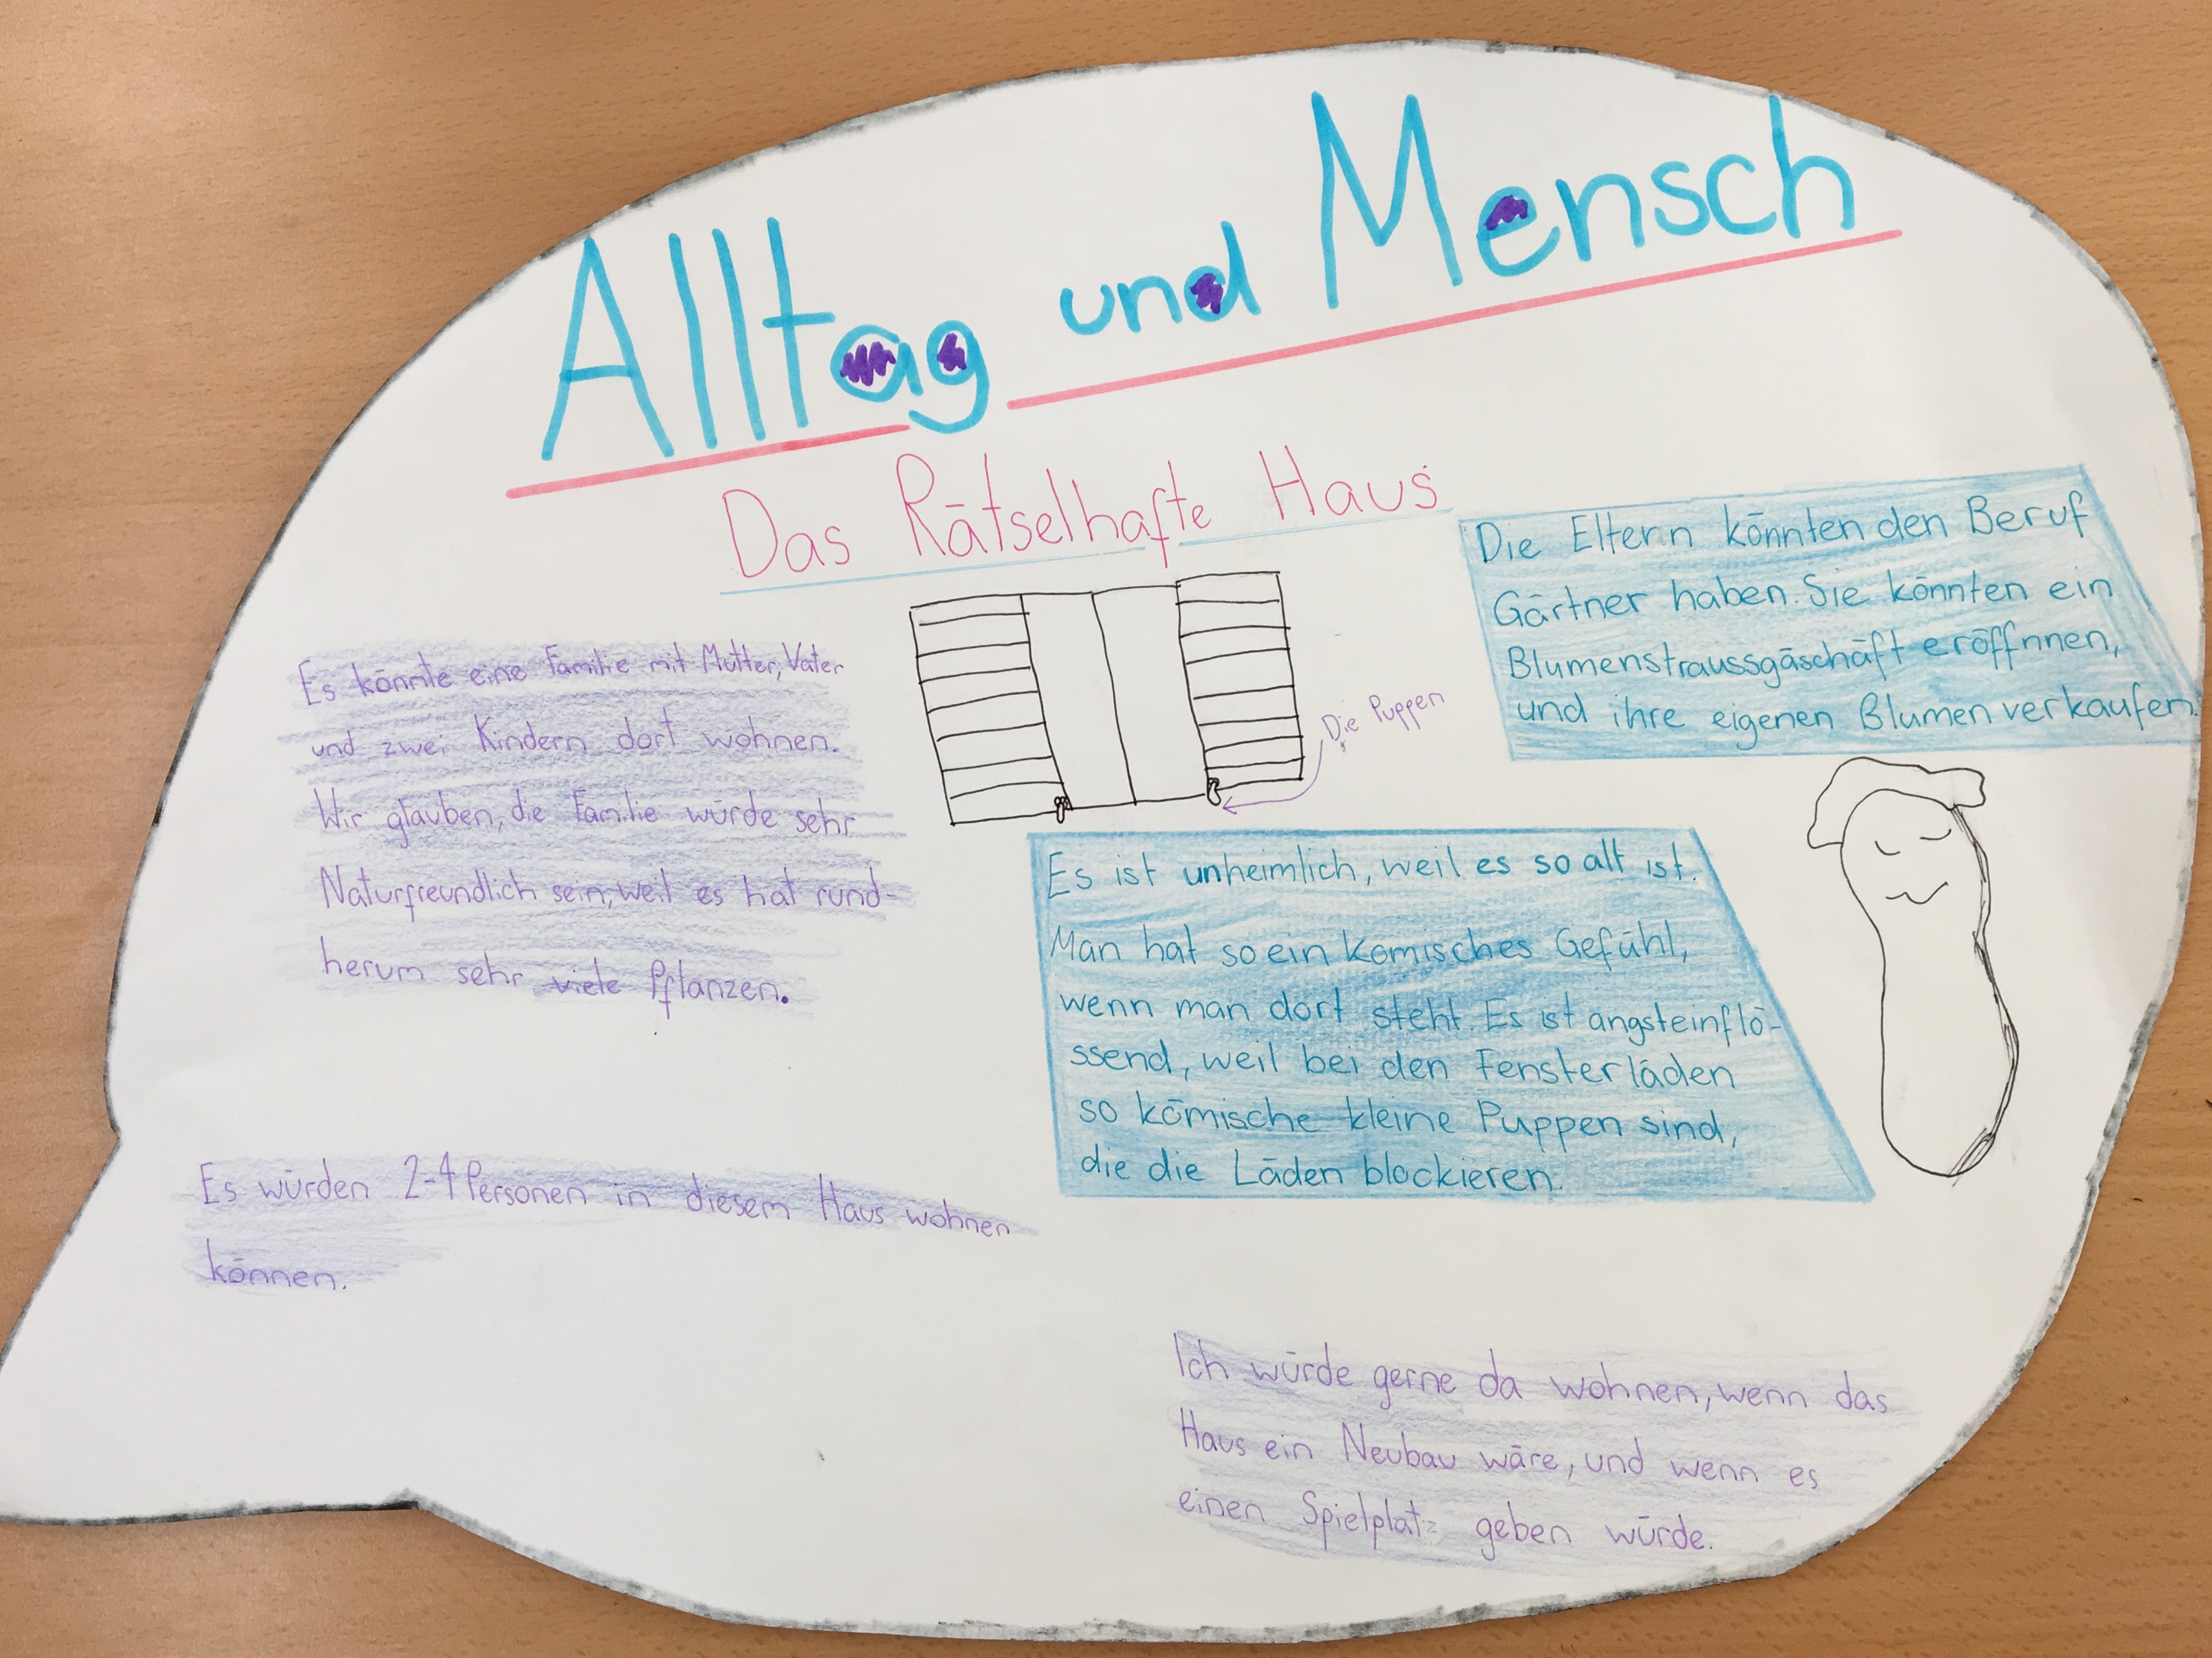 Alltag und Mensch
Das Rätselhafte Haus
Es könnte eine Familie mit Mutter, Vater
und zwei Kindern dort wohnen.
Wir glauben, die Familie würde sehr
Naturfreundlich sein, weil es hat rund-
herum sehr viele Pflanzen.
Die Puppen
Die Eltern könnten den Beruf
Gärtner haben. Sie könnten ein
Blumenstraussgäschäft eröffnnen,
und ihre eigenen Blumen verkaufen.
Es ist unheimlich, weil es so alt ist.
Man hat so ein komisches Gefühl,
wenn man dort steht. Es ist angsteinflö-
ssend, weil bei den Fensterläden
so kömische kleine Puppen sind,
die die Läden blockieren.
Es würden 2-4 Personen in diesem Haus wohnen
können.
Ich würde gerne da wohnen, wenn das
Haus ein Neubau wäre, und wenn es
einen Spielplatz geben würde.